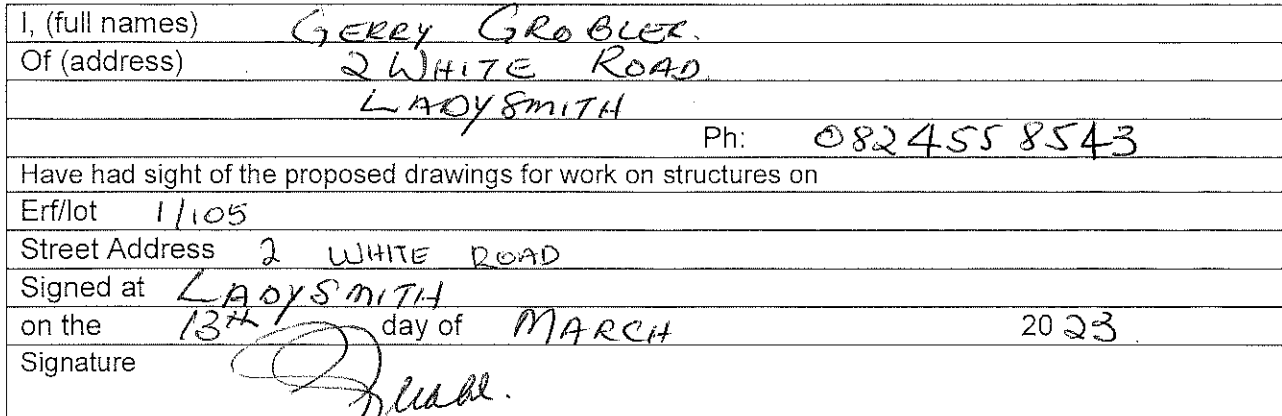 I, (full names) GERRY GROBLER.
Of (address) 2 WHITE ROAD
LADYSMITH
Ph: 082 455 8543
Have had sight of the proposed drawings for work on structures on
Erf/lot 1/105
Street Address 2 WHITE ROAD
Signed at LADYSMITH
on the 13th day of MARCH 2023
Signature